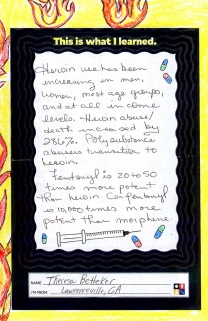 This is what I learned.
Heroin use has been
increasing in men,
women, most age groups,
and at all in come
levels. Heroin abuse/
death increased by
286%. Polysubstance
abusers transition to
heroin.
Fentanyl is 20 to 50
times more potent
than heroin. Carfentanyl
is 10,000 times more
potent than morphine
NAME
I'M FROM Lawrenceville, GA